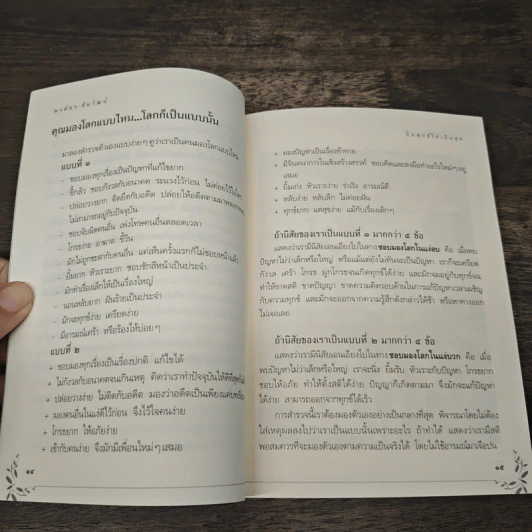 พงศ์ปกร พิชิตฉัตรธนา
คุณมองโลกแบบไหน...โลกก็เป็นแบบนั้น
มาลองสำรวจตัวเองแบบง่ายๆ ดูว่าเราเป็นคนมองโลกแบบไหน
แบบที่ ๑
- ชอบมองทุกเรื่องเป็นปัญหาที่แก้ไขยาก
- ขี้กลัว ชอบกังวลกับอนาคต ระแวงไว้ก่อน ไม่ค่อยไว้ใจใคร
- ปล่อยวางยาก ติดยึดกับอดีต ปล่อยให้อดีตตามมาหลอกหลอน
- ไม่สามารถอยู่กับปัจจุบัน
- ชอบจับผิดคนอื่น เพ่งโทษคนอื่นตลอดเวลา
- โกรธง่าย อาฆาต ชีวิน
- มักไม่ถูกชะตากับคนอื่น แค่เห็นครั้งแรกก็ไม่ชอบหน้าแล้ว
- ยิ้มยาก หัวเราะยาก ชอบชักสีหน้าเป็นประจำ
- มักทำเรื่องเล็กให้เป็นเรื่องใหญ่
- นอนหลับยาก ฝันร้ายเป็นประจำ
- มักจะทุกข์ง่าย เครียดง่าย
- มีอารมณ์เศร้า หรือร้องไห้บ่อยๆ
แบบที่ ๒
+ ชอบมองทุกเรื่องเป็นเรื่องปกติ แก้ไขได้
+ ไม่กังวลกับอนาคตจนเกินเหตุ คิดว่าเราทำปัจจุบันให้ดีที่สุด
+ ปล่อยวางง่าย ไม่ติดกับอดีต มองว่าอดีตเป็นเพียงแค่บทเรียน
+ มองคนอื่นในแง่ดีไว้ก่อน จึงไว้ใจคนง่าย
+ โกรธยาก ให้อภัยง่าย
+ เข้ากับคนง่าย จึงมักมีเพื่อนใหม่ๆ เสมอ
๑๔
+ มองปัญหาเป็นเรื่องท้าทาย
+ มีจินตนาการในเชิงสร้างสรรค์ ชอบคิดและลงมือทำอะไรใหม่ๆ อยู่
เสมอ
+ ยิ้มเก่ง หัวเราะง่าย ร่าเริง อารมณ์ดี
+ หลับง่าย หลับลึก ไม่ค่อยฝัน
+ ทุกข์ยาก แต่สุขง่าย แม้กับเรื่องเล็กๆ
ถ้านิสัยของเราเป็นแบบที่ ๑ มากกว่า ๕ ข้อ
แสดงว่าเรามีนิสัยเอนเอียงไปในทางชอบมองโลกในแง่ลบ คือ เมื่อพบ
ปัญหาไม่ว่าเล็กหรือใหญ่ หรือแม้แต่ยังไม่ทันจะเป็นปัญหา เราก็จะเครียด
กังวล เศร้า โกรธ ผูกโกรธจนเกิดทุกข์ได้ง่าย และมักจมอยู่กับทุกข์จน
ทำให้ขาดสติ ขาดปัญญา ขาดความคิดรอบด้านในการแก้ปัญหา เวลาเผชิญ
กับความทุกข์ และมักจะออกจากความรู้สึกดังกล่าวได้ช้า หรือหาทางออก
ไม่เจอเลย
ถ้านิสัยของเราเป็นแบบที่ ๒ มากกว่า ๕ ข้อ
แสดงว่าเรามีนิสัยเอนเอียงไปในทางชอบมองโลกในแง่บวก คือ เมื่อ
พบปัญหาไม่ว่าเล็กหรือใหญ่ เราจะนิ่ง ยิ้มรับ หัวเราะกับปัญหา โกรธยาก
ชอบให้อภัย ทำให้ตั้งสติได้ง่าย ปัญญาก็เกิดตามมา จึงมักจะแก้ปัญหา
ได้ง่าย สามารถออกจากทุกข์ได้เร็ว
การสำรวจนี้เราต้องมองตัวเองอย่างเป็นกลางที่สุด พิจารณาโดยไม่ต้อง
ใส่เหตุผลลงไปว่าเราเป็นแบบนั้นเพราะอะไร ถ้าทำได้ แสดงว่าเรามีสติ
พอสมควรที่จะมองตัวเองตามความเป็นจริงได้ โดยไม่ใช้อารมณ์มาเจือปน
๑๕